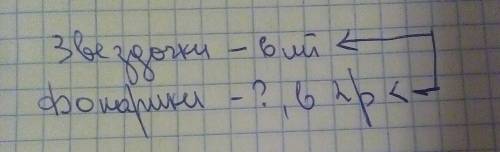 Звездочки – 6 шт
Фонарики – ?, в 2р <